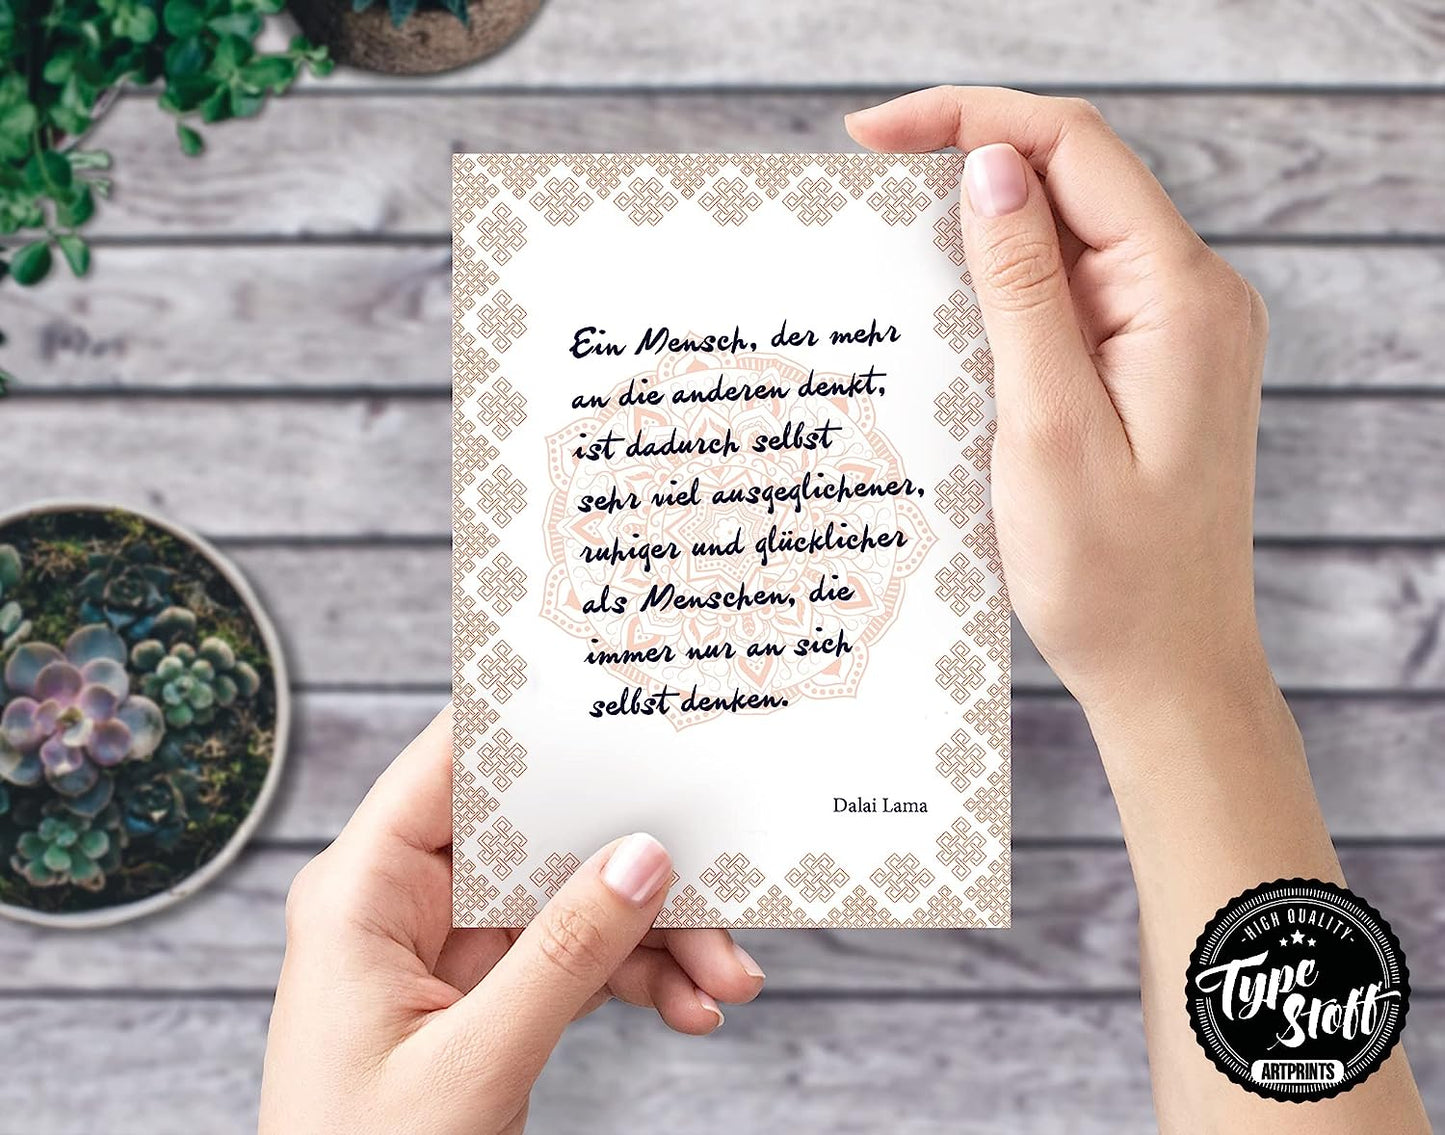 Ein Mensch, der mehr
an die anderen denkt,
ist dadurch selbst
sehr viel ausgeglichener,
ruhiger und glücklicher
als Menschen, die
immer nur an sich
selbst denken.
Dalai Lama
-HIGH QUALITY-
Type
Stoff
ARTPRINTS